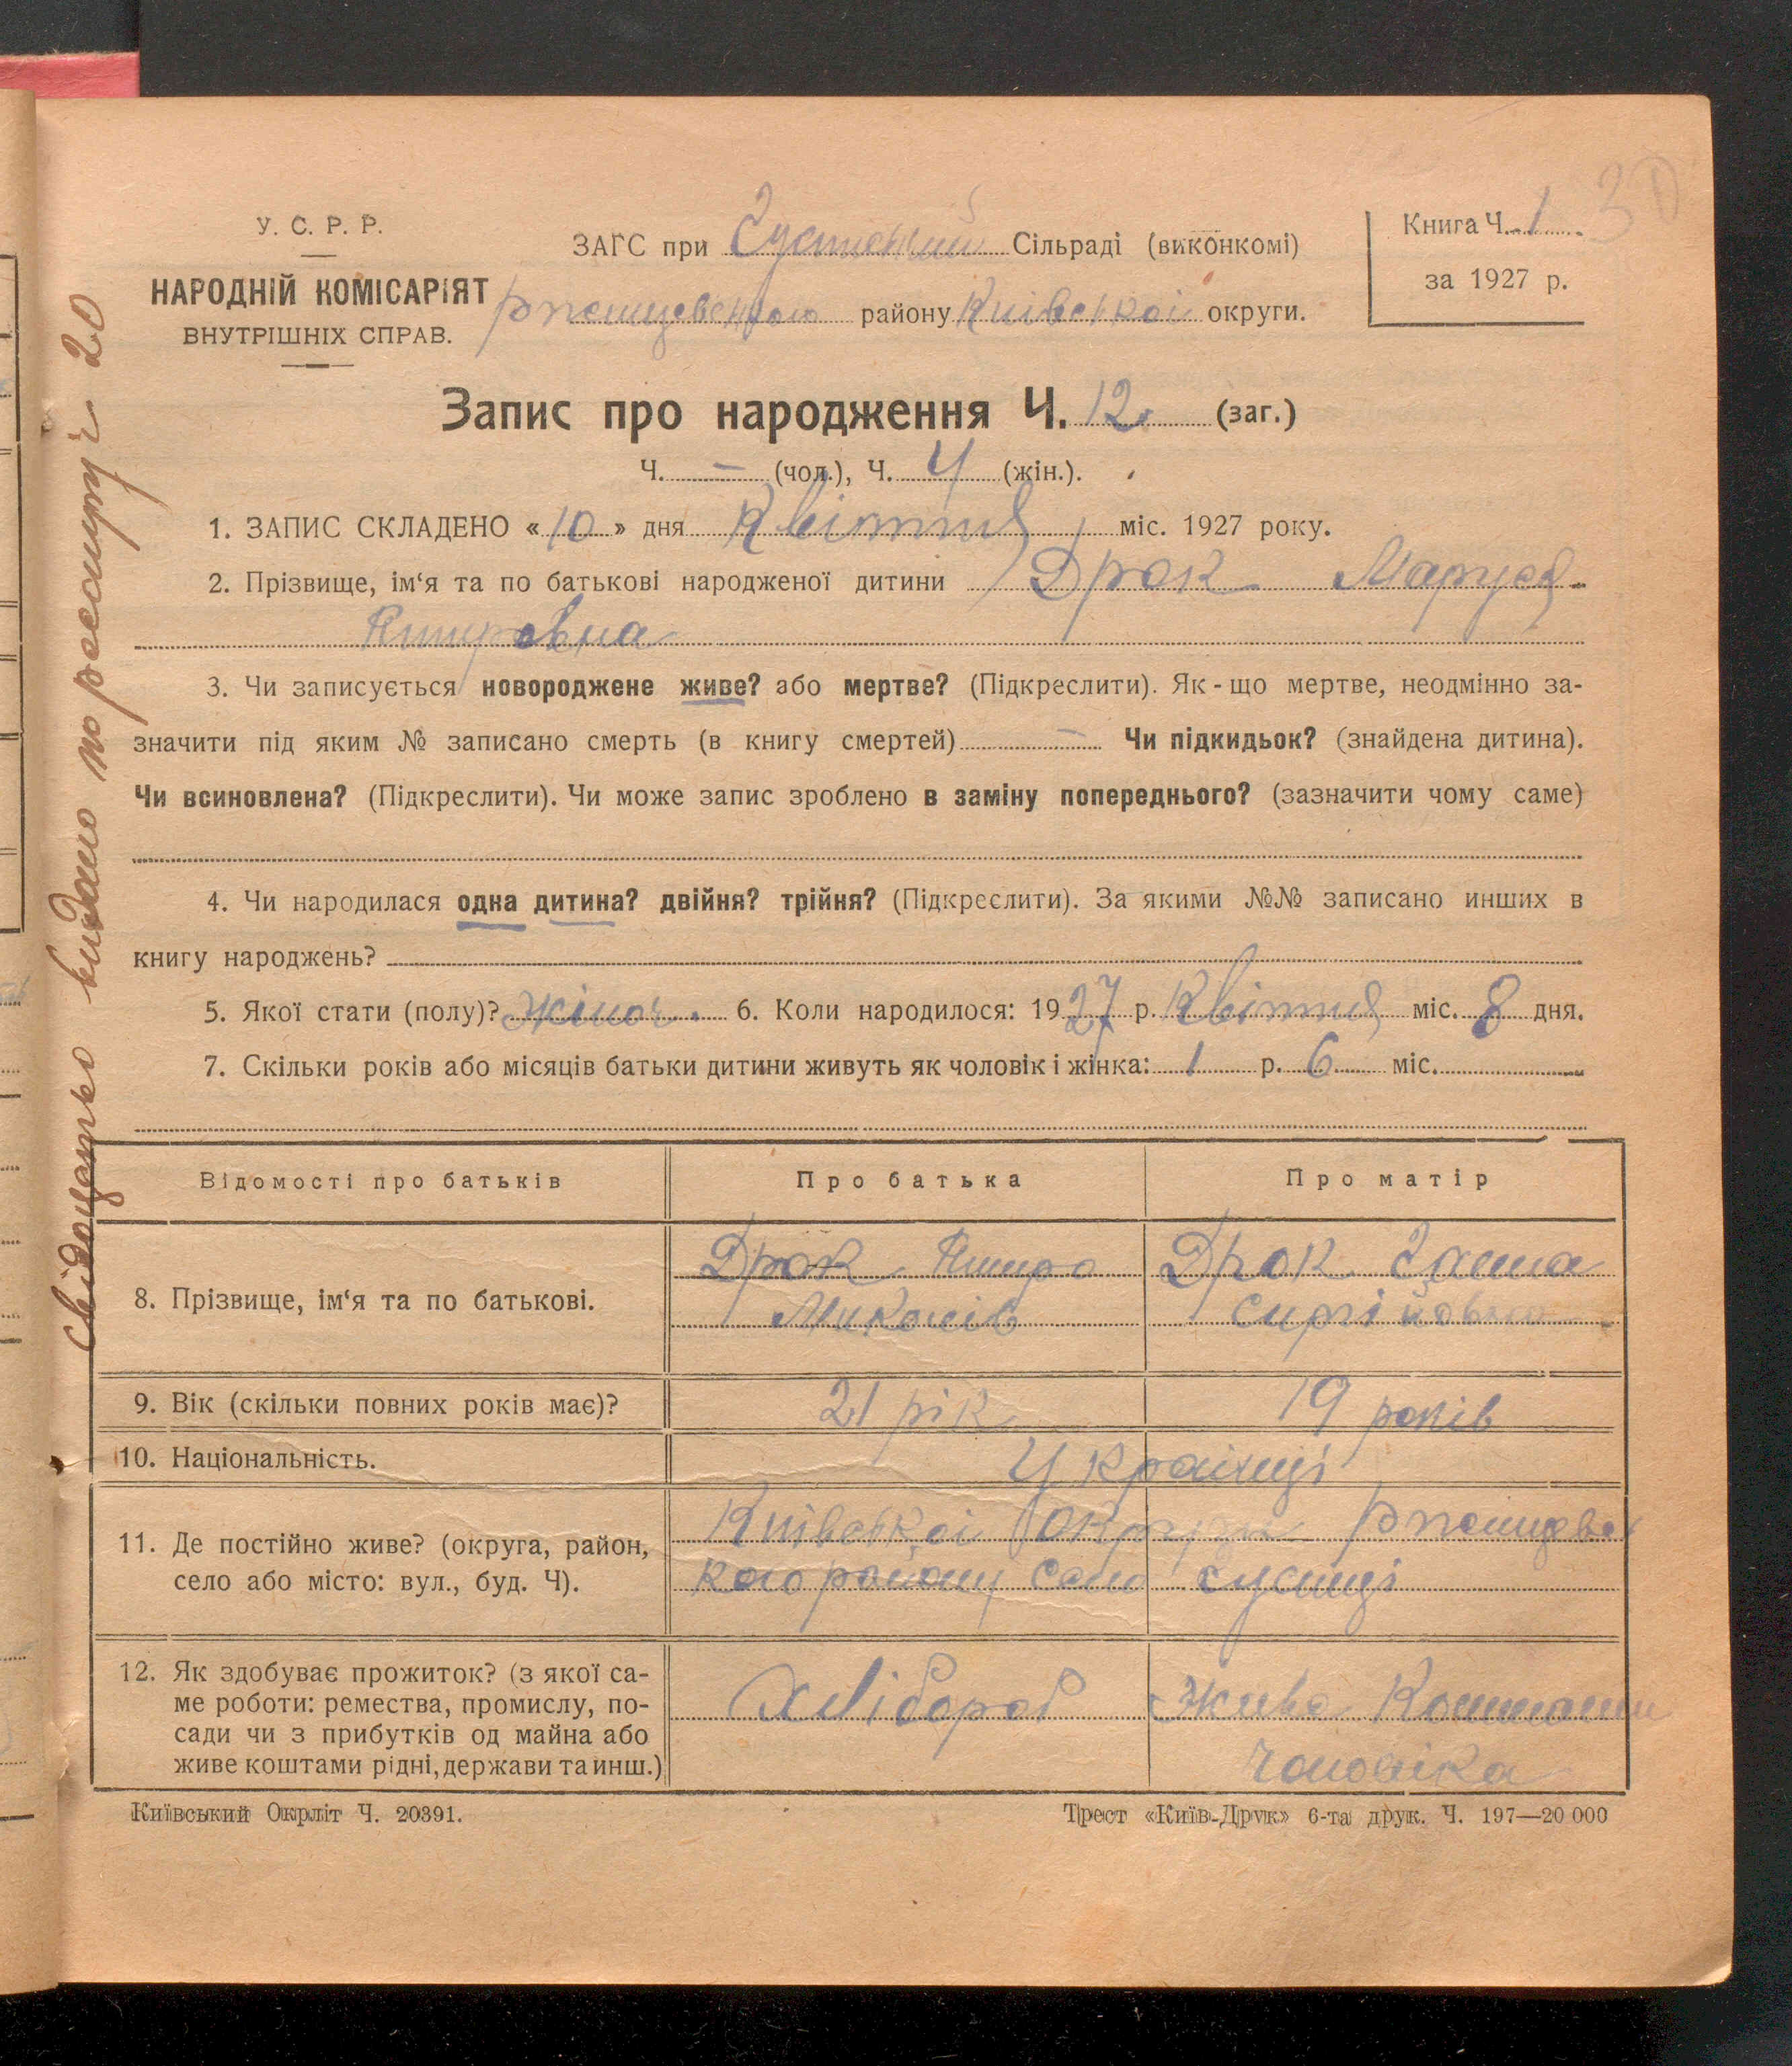 30
У. С. Р. Р.
НАРОДНІЙ КОМІСАРІЯТ
ВНУТРІШНІХ СПРАВ.
ЗАГС при Сільраді (виконкомі)
району Київської округи.
Книга Ч. 1
за 1927 р.
Запис про народження Ч. 12 (заг.)
Ч. — (чол.), Ч. 4 (жін.).
1. ЗАПИС СКЛАДЕНО «10» дня Квітня міс. 1927 року.
2. Прізвище, ім‘я та по батькові народженої дитини Дрок Маруся
3. Чи записується новороджене живе? або мертве? (Підкреслити). Як - що мертве, неодмінно за-
значити під яким № записано смерть (в книгу смертей) — Чи підкидьок? (знайдена дитина).
Чи всиновлена? (Підкреслити). Чи може запис зроблено в заміну попереднього? (зазначити чому саме)
4. Чи народилася одна дитина? двійня? трійня? (Підкреслити). За якими №№ записано инших в
книгу народжень?
5. Якої стати (полу)? жіноч. 6. Коли народилося: 1927 р. Квітня міс. 8 дня.
7. Скільки років або місяців батьки дитини живуть як чоловік і жінка: 1 р. 6 міс.
Відомості про батьків Про батька Про матір
8. Прізвище, ім‘я та по батькові.
Дрок
Дрок
9. Вік (скільки повних років має)? 21 рік 19 років
10. Національність. Українці
11. Де постійно живе? (округа, район,
село або місто: вул., буд. Ч).
Київської округи Ржищевсь
кого району село
12. Як здобуває прожиток? (з якої са-
ме роботи: ремества, промислу, по-
сади чи з прибутків од майна або
живе коштами рідні, держави та инш.)
Хлібороб
Живе Коштами
Чоловіка
Київський Окрліт Ч. 20391.
Трест «Київ-Друк» 6-та друк. Ч. 197—20 000
видано 20